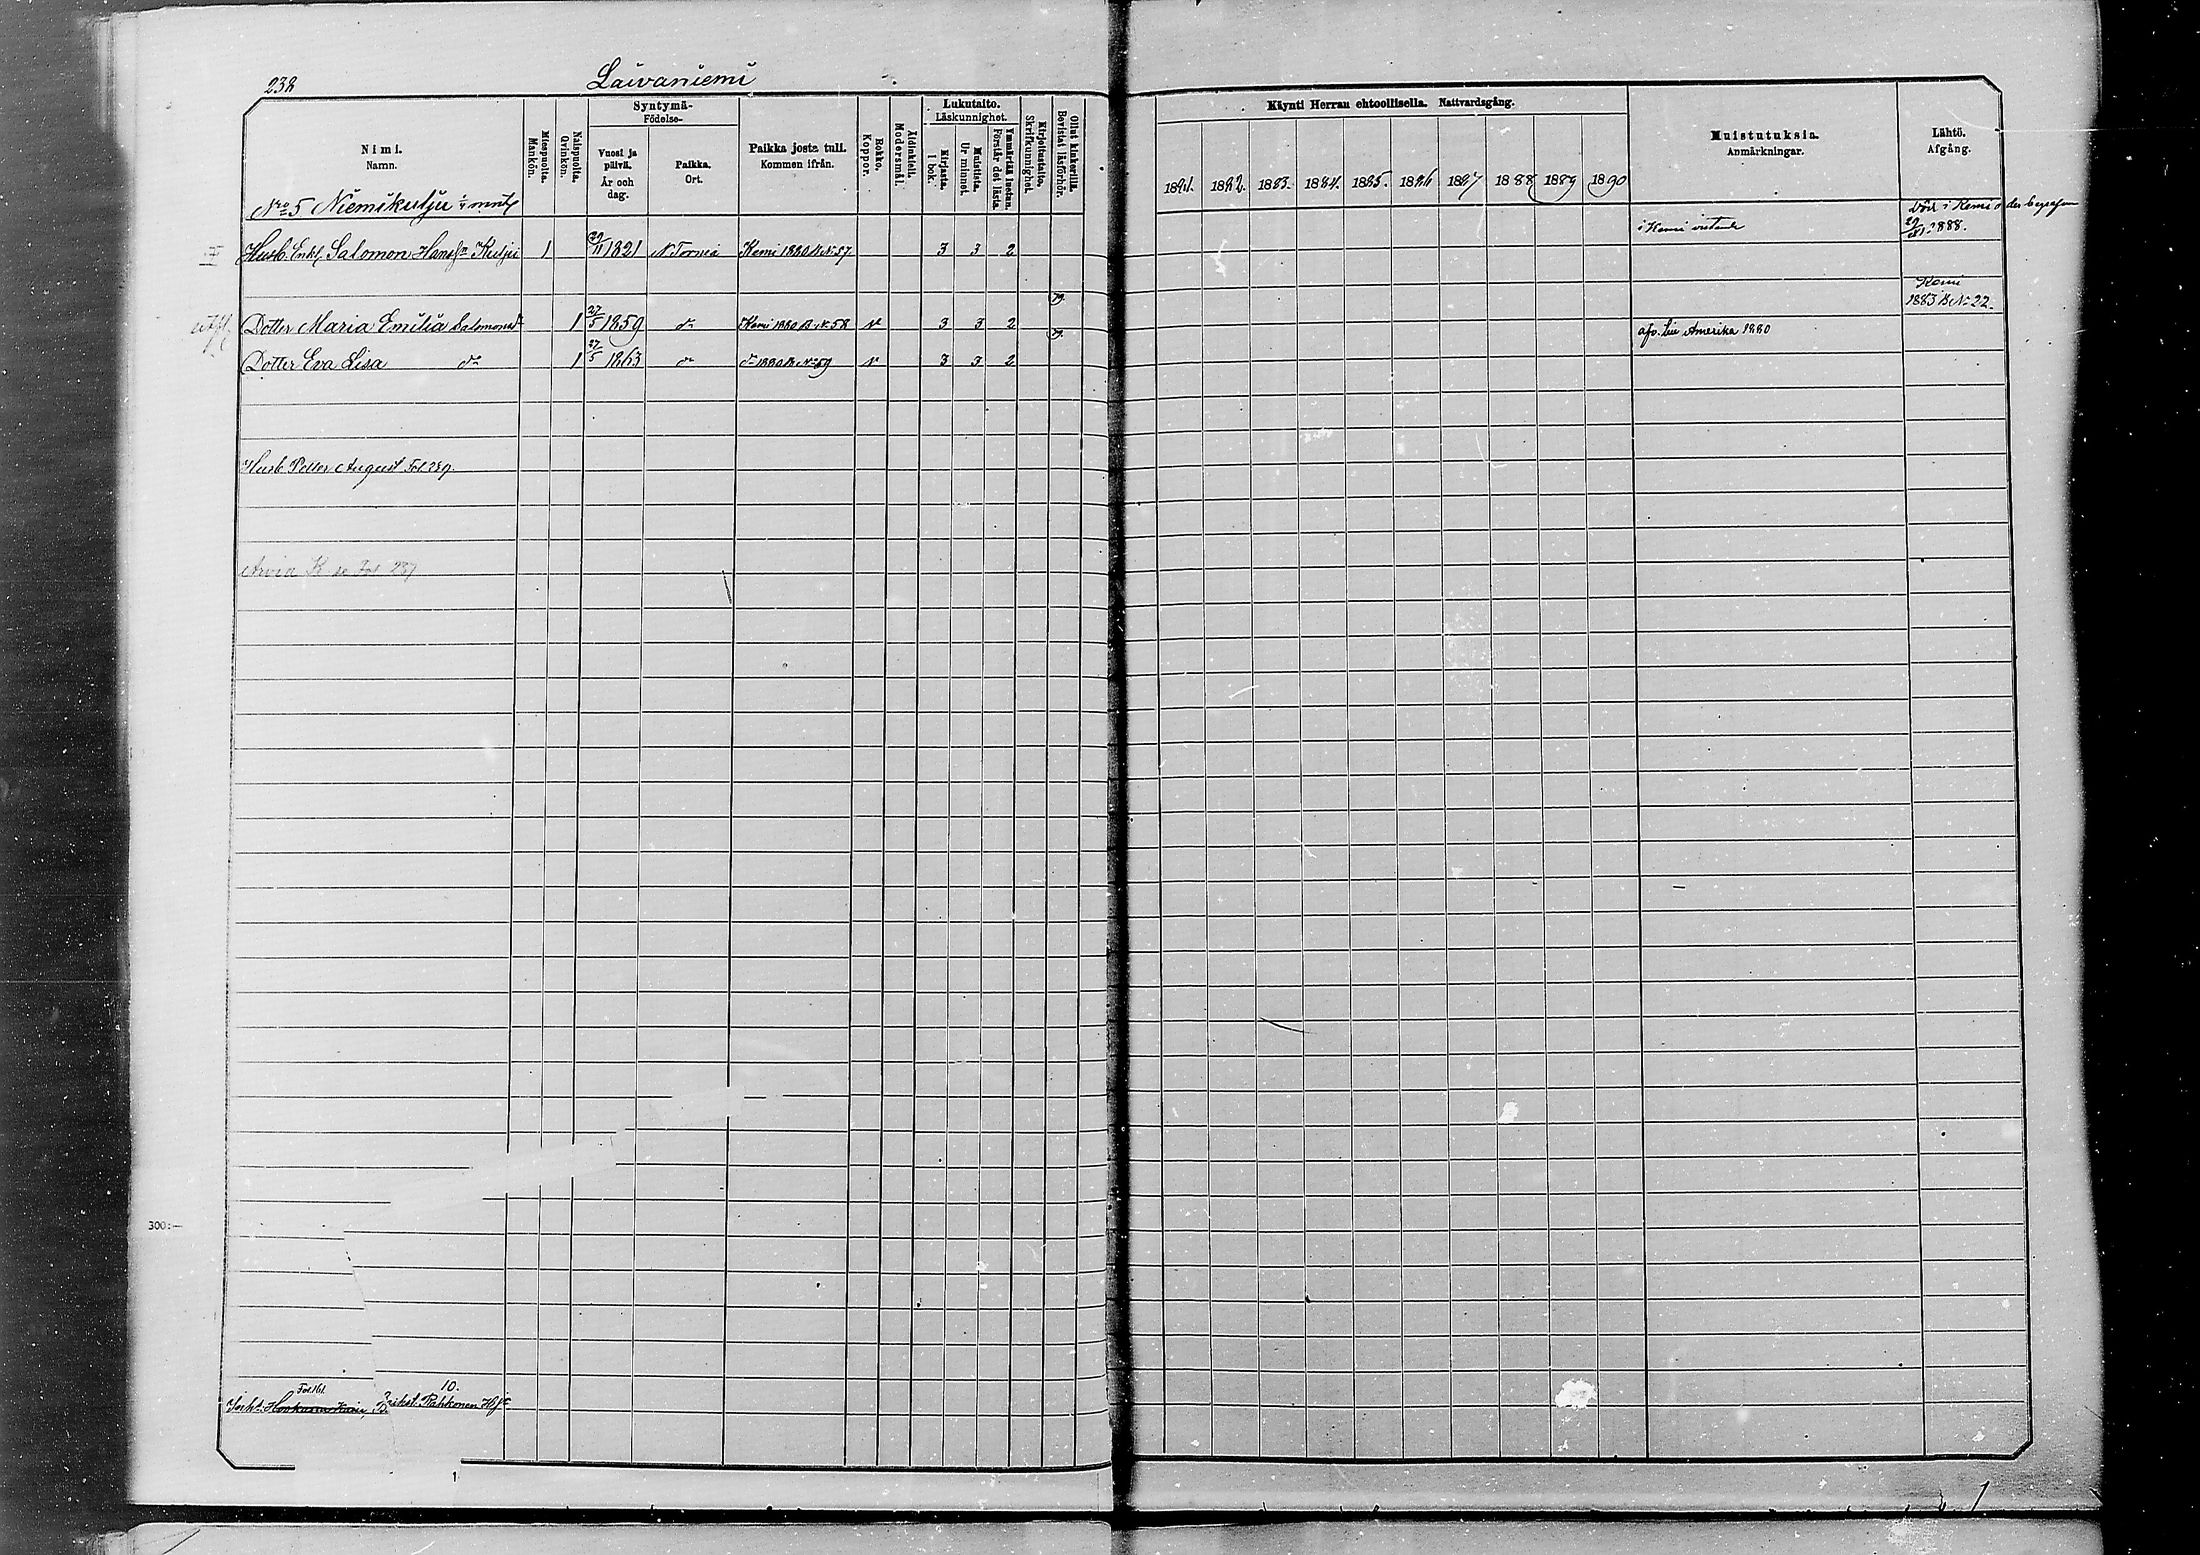 238
Laivaniemi
Nimi.
Namn.
Miespuolia.
Mankön.
Naispuolia.
Qvinkön.
Syntymä-
Födelse-
Vuosi ja päivä.
År och dag.
Paikka.
Ort.
Paikka josta tuli.
Kommen ifrån.
Rokko.
Koppor.
Äidinkieli.
Modersmål.
Lukutaito.
Läskunnighet.
Kirjasta.
I bok.
Muistista.
Ur minnet.
Ymmärtää luetun.
Förstår det lästa.
Kirjoitustaito.
Skrifkunnighet.
Ollut kinkerillä.
Bevistat läsförhör.
Käynti Herran ehtoollisella. Nattvardsgång.
1881. 1882. 1883. 1884. 1885. 1886 1887 1888 1889 1890
Muistutuksia.
Anmärkningar.
Lähtö.
Afgång.
Nro 5 Niemikutju
Husb. Enkl. Salomon Hanss:n Kutju 1 29/11 1821 N Torneå Kemi 1880 B. N. 57. 3 3 2 i Kemi Död i Kemi 29/ 1888.
Dotter Maria Emilia Salomonsd:r 1 27/5 1859 d:o Kemi 1880 B. N. 58 v 3 3 2 79. Kemi 1883 B. No 22
Dotter Eva Lisa d:o 1 27/5 1863 d:o d:o 1880 B. No 59 v 3 3 2 79. Amerika 1880
Husb. Petter August Fol. 239.
Arvid K se Fol 237
300:—
Fol. 161. 10.
Pahkonen
1